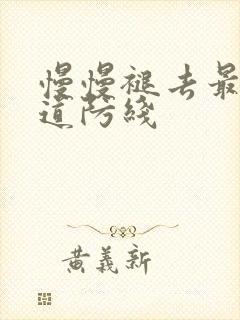 慢慢褪去最
道防线
黄義新